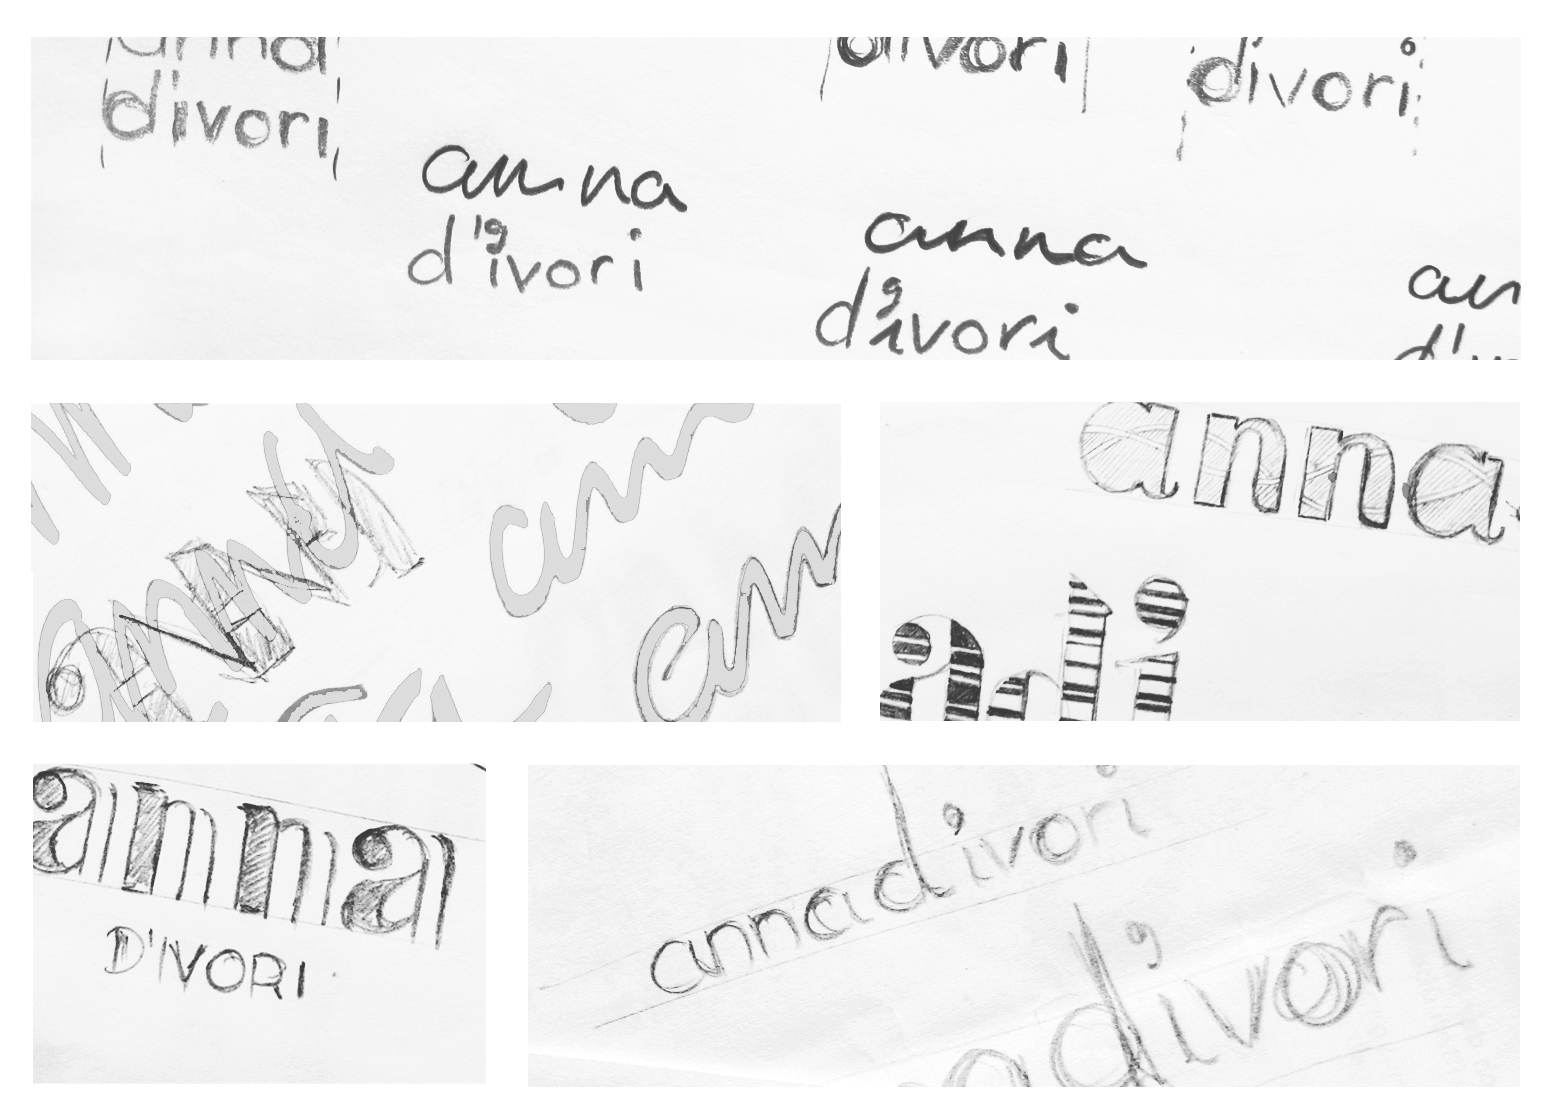 anna
divori
divori
divori
anna
d'ivori
anna
divori
an
d'iv
anna
ann
ann
anna
adi
anna
D'IVORI
annadivori
adivori